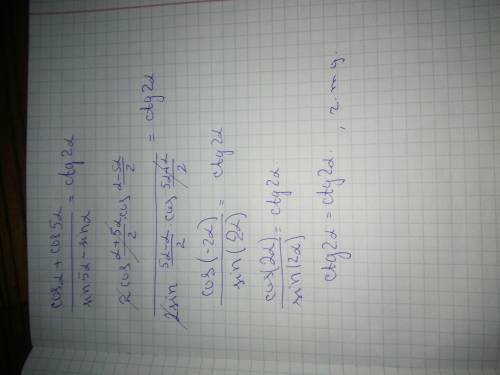 cosα + cos5α / sin5α − sinα = ctg2α
2cos (α+5α)/2 cos (α−5α)/2 / 2sin (5α−α)/2 · cos (5α+α)/2 = ctg2α
cos(−2α) / sin(2α) = ctg2α
cos(2α) / sin(2α) = ctg2α
ctg2α = ctg2α. , ч.т.д.